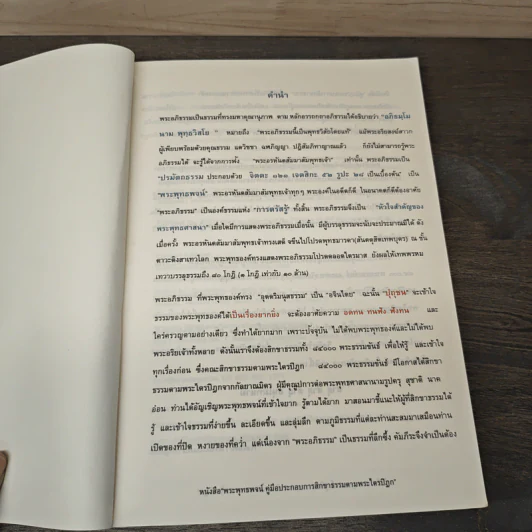 คำนำ
พระอภิธรรมเป็นธรรมที่ทรงมหาคุณานุภาพ ตาม หลักอรรถกถาอภิธรรมได้อธิบายว่า "อภิธมฺโม
นาม พุทฺธวิสโย " หมายถึง "พระอภิธรรมนี้เป็นพุทธวิสัยโดยแท้ แม้พระอริยสงฆ์สาวก
ผู้เพียบพร้อมด้วยคุณธรรม แตวิชชา อภิญญา ปฏิสัมภิทาญาณแล้ว ก็ยังไม่สามารถรู้พระ
อภิธรรมได้ จะรู้ได้จากการฟัง "พระอรหันตสัมมาสัมพุทธเจ้า" เท่านั้น พระอภิธรรมเป็น
"ปรมัตถธรรม ประกอบด้วย จิตตะ ๑๒๑ เจตสิกะ ๕๒ รูปะ ๒๘ เป็นเบื้องต้น" เป็น
"พระพุทธพจน์" พระอรหันตสัมมาสัมพุทธเจ้าทุกๆ พระองค์ในอดีตก็ดี ในอนาคตก็ดีต้องอาศัย
"พระอภิธรรม" เป็นองค์ธรรมแห่ง "การตรัสรู้" ทั้งสิ้น พระอภิธรรมจึงเป็น "หัวใจสำคัญของ
พระพุทธศาสนา" เมื่อใดมีการแสดงพระอภิธรรมเมื่อนั้น มีผู้บรรลุธรรมจะนับจะประมาณมิได้ ดัง
เมื่อครั้ง พระอรหันตสัมมาสัมพุทธเจ้าทรงเสด็จขึ้นไปโปรดพุทธมารดา(สันตดุสิตเทพบุตร) ณ ชั้น
ดาวะดึงสาเทวโลก พระพุทธองค์ทรงแสดงพระอภิธรรมโปรดตลอดไตรมาส ยังผลให้เทพพรหม
เทวาบรรลุธรรมถึง ๘๐ โกฏิ (๑ โกฏิ เท่ากับ ๑๐ ล้าน)
พระอภิธรรม ที่พระพุทธองค์ทรง "อุตตริมนุสธรรม" เป็น "อจินไตย" ฉะนั้น "ปุถุชน" จะเข้าใจ
ธรรมของพระพุทธองค์ได้เป็นเรื่องยากยิ่ง จะต้องอาศัยความ อดทน ทนฟัง ฟังทน และ
ใคร่ครวญตามอย่างเดียว ซึ่งทำได้ยากมาก เพราะปัจจุบัน ไม่ได้พบพระพุทธองค์และไม่ได้พบ
พระอริยเจ้าทั้งหลาย ดังนั้นเราจึงต้องสิกขาธรรมทั้ง ๘๔๐๐๐ พระธรรมขันธ์ เพื่อให้รู้ และเข้าใจ
ทุกเรื่องก่อน ซึ่งคณะสิกขาธรรมตามพระไตรปิฎก ๘๔๐๐๐ พระธรรมขันธ์ มีโอกาสได้สิกขา
ธรรมตามพระไตรปิฎกจากกัลยาณมิตร ผู้มีคุณูปการต่อพระพุทธศาสนานามรูปครู สุชาติ นาค
อ่อน ท่านได้อัญเชิญพระพุทธพจน์ที่เข้าใจยาก รู้ตามได้ยาก มาสอนมาชี้แนะให้ผู้ที่สิกขาธรรมได้
รู้ และเข้าใจธรรมที่ง่ายขึ้น ละเอียดขึ้น และลุ่มลึก ตามภูมิธรรมที่แต่ละท่านสะสมมาเสมือนท่าน
เปิดของที่ปิด หงายของที่คว่ำ แต่เนื่องจาก "พระอภิธรรม" เป็นธรรมที่ลึกซึ้ง คัมภีระจึงจำเป็นต้อง
หนังสือ"พระพุทธพจน์ คู่มือประกอบการสิกขาธรรมตามพระไตรปิฎก"